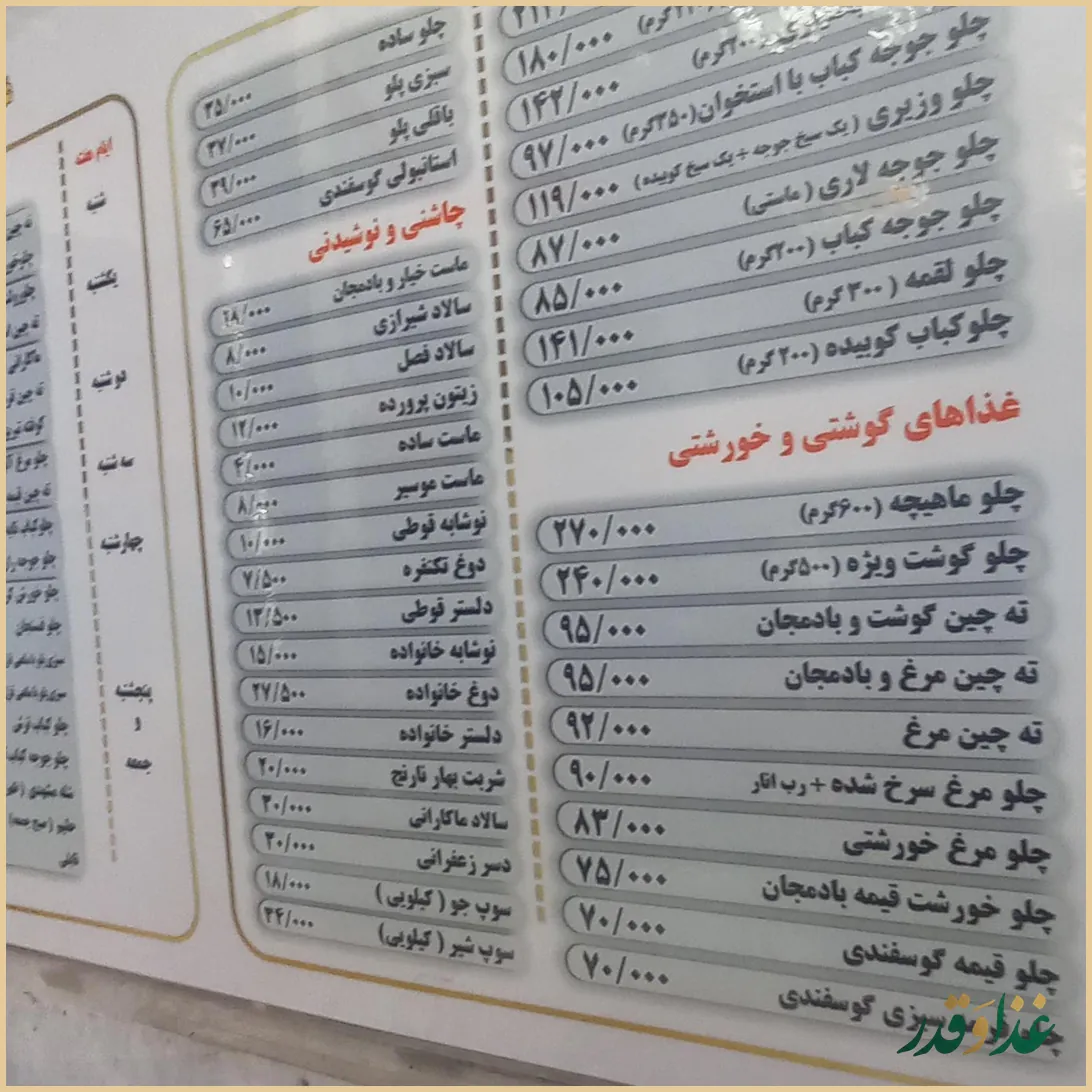 ۱۸۰/۰۰۰
(۲۰۰گرم) ۱۴۲/۰۰۰
چلو جوجه کباب با استخوان(۳۵۰گرم) ۹۷/۰۰۰
چلو وزیری (یک سیخ جوجه + یک سیخ کوبیده) ۱۱۹/۰۰۰
چلو جوجه لاری (ماستی) ۸۷/۰۰۰
چلو جوجه کباب (۲۰۰گرم) ۸۵/۰۰۰
چلو لقمه (۳۰۰گرم) ۱۴۱/۰۰۰
چلوکباب کوبیده (۲۰۰گرم) ۱۰۵/۰۰۰
غذاهای گوشتی و خورشتی
چلو ماهیچه (۶۰۰گرم) ۲۷۰/۰۰۰
چلو گوشت ویژه (۵۰۰گرم) ۲۴۰/۰۰۰
ته چین گوشت و بادمجان ۹۵/۰۰۰
ته چین مرغ و بادمجان ۹۵/۰۰۰
ته چین مرغ ۹۲/۰۰۰
چلو مرغ سرخ شده + رب انار ۹۰/۰۰۰
چلو مرغ خورشتی ۸۳/۰۰۰
چلو خورشت قیمه بادمجان ۷۵/۰۰۰
چلو قیمه گوسفندی ۷۰/۰۰۰
سبزی گوسفندی ۷۰/۰۰۰
چلو ساده ۲۵/۰۰۰
سبزی پلو ۳۷/۰۰۰
باقلی پلو ۳۹/۰۰۰
استانبولی گوسفندی ۶۵/۰۰۰
چاشنی و نوشیدنی
ماست خیار و بادمجان
سالاد شیرازی ۸/۰۰۰
سالاد فصل ۱۰/۰۰۰
زیتون پرورده ۱۲/۰۰۰
ماست ساده ۴/۰۰۰
ماست موسیر ۸/۰۰۰
نوشابه قوطی ۱۰/۰۰۰
دوغ تکنفره ۷/۵۰۰
دلستر قوطی ۱۳/۵۰۰
نوشابه خانواده ۱۵/۰۰۰
دوغ خانواده ۲۷/۵۰۰
دلستر خانواده ۱۶/۰۰۰
شربت بهار نارنج ۲۰/۰۰۰
سالاد ماکارانی ۲۰/۰۰۰
دسر زعفرانی ۲۰/۰۰۰
سوپ جو (کیلویی) ۱۸/۰۰۰
سوپ شیر (کیلویی)
ایام هفته
شنبه
یکشنبه
دوشنبه
سه شنبه
چهارشنبه
پنجشنبه
و
جمعه
غذا و قدر